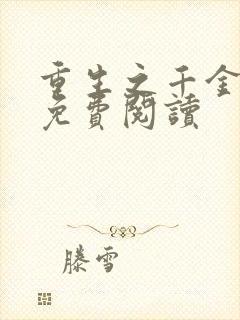 重生之千金
免費閱讀
滕雪